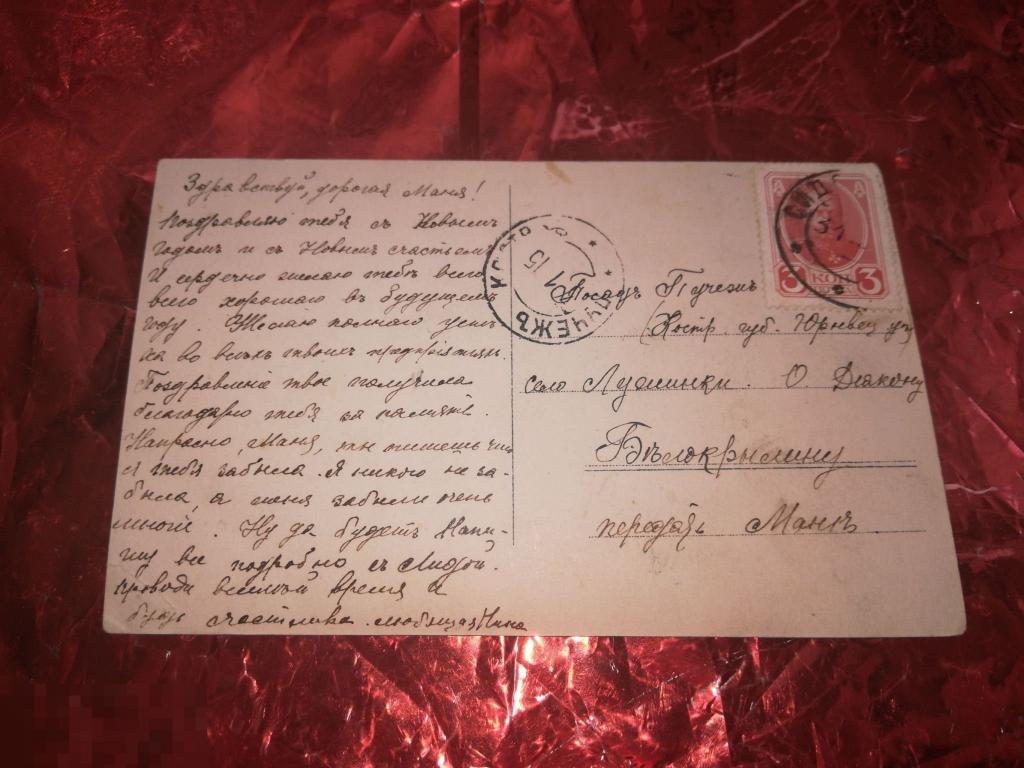 Здравствуй, дорогая Маня!
Поздравляю тебя съ Новымъ
годомъ и съ Новымъ счастьемъ
И сердечно желаю тебѣ всего
всего хорошаго въ будущемъ
году. Желаю полнаго успѣ
ха во всѣхъ твоихъ предпріятіях.
Поздравленіе твое получила
благодарю тебя за память.
Напрасно, Маня, ты пишешь что
я тебя забыла. Я никого не за-
была, а меня забыли очень
многіе. Ну да будетъ Напи-
шу все подробно съ Лидой.
проводи веселой время и
будь счастлива. любящая Нина
Посадъ Пучежъ
(Костр. губ. Юрьевец. уѣ)
село Лужинки. О. Діакону
Бѣлокрылину
передать Манѣ
ПУЧЕЖЪ КОСТРО
1 15
3 КОП 3